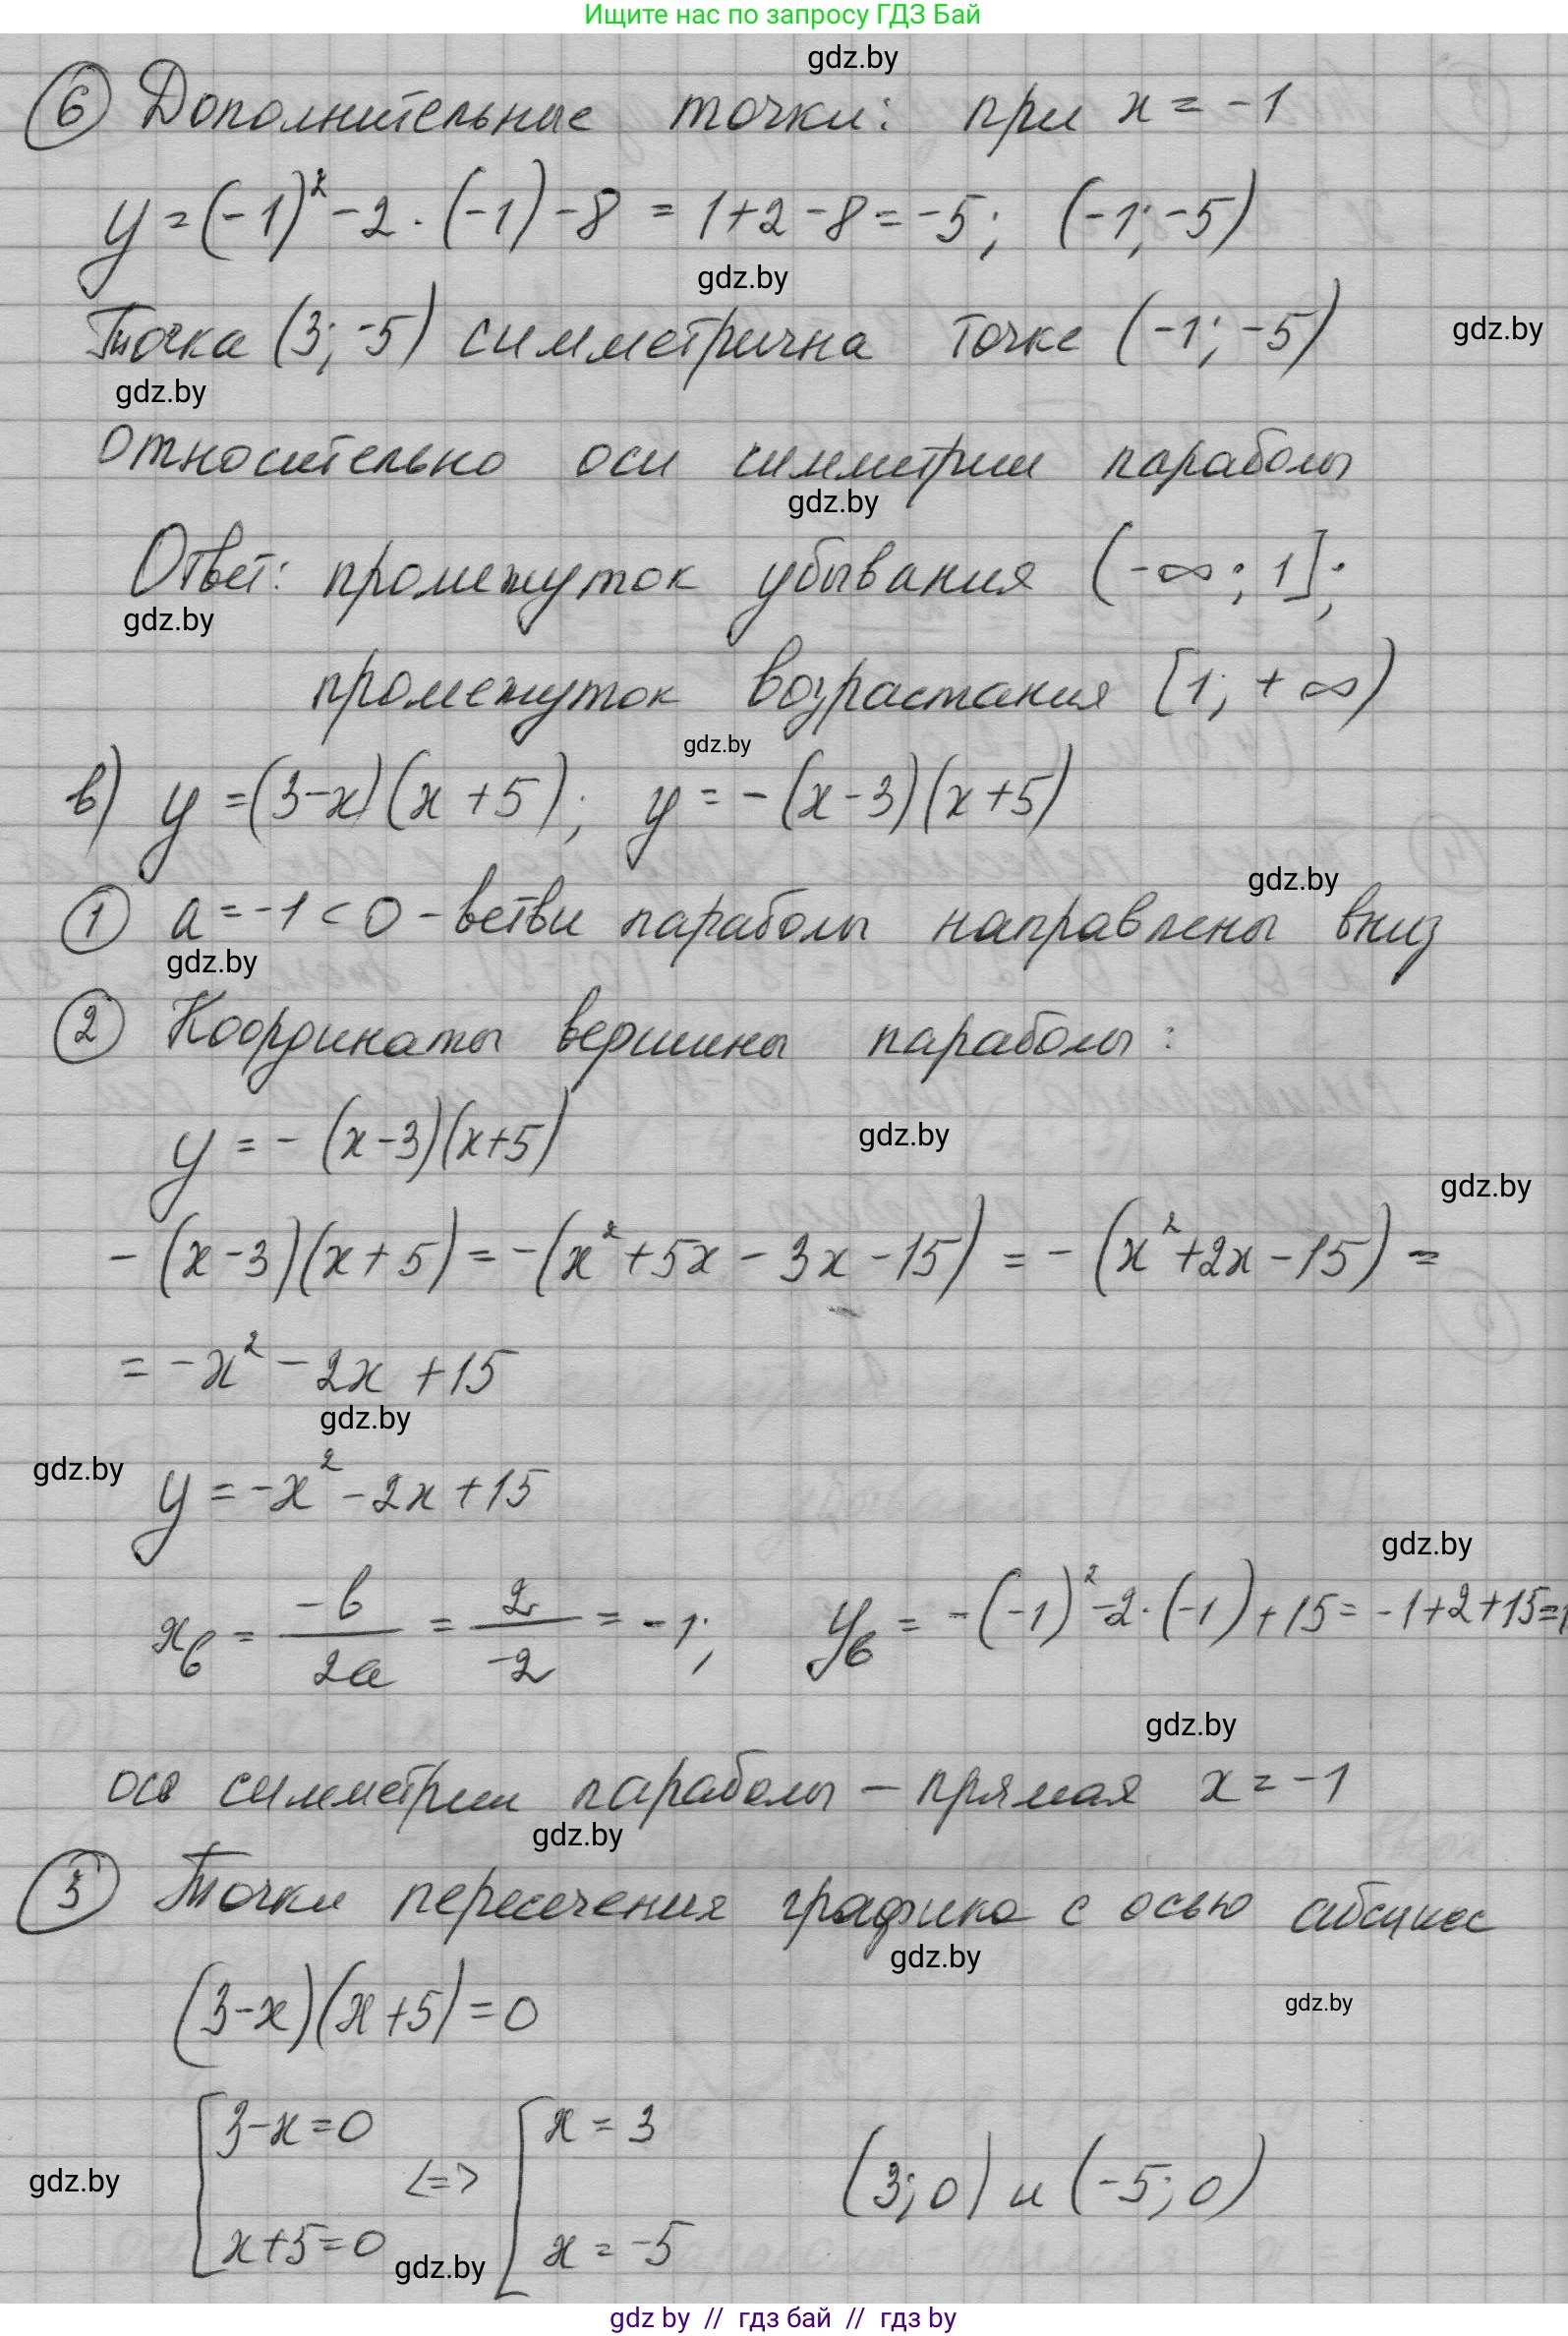 Ищите нас по запросу ГДЗ Бай
gdz.by
⑥ Дополнительные точки: при x = -1
y = (-1)² - 2 · (-1) - 8 = 1 + 2 - 8 = -5; (-1; -5)
gdz.by
Точка (3; -5) симметрична точке (-1; -5)
gdz.by
gdz.by
относительно оси симметрии параболы
gdz.by
Ответ: промежуток убывания (-∞; 1];
gdz.by
промежуток возрастания [1; +∞)
gdz.by
в) y = (3-x)(x+5); y = -(x-3)(x+5)
gdz.by
① a = -1 < 0 - ветви параболы направлены вниз
gdz.by
② Координаты вершины параболы:
y = -(x-3)(x+5)
gdz.by
gdz.by
-(x-3)(x+5) = -(x² + 5x - 3x - 15) = -(x² + 2x - 15) =
= -x² - 2x + 15
gdz.by
gdz.by
y = -x² - 2x + 15
gdz.by
xв = -b/2a = 2/-2 = -1; yв = -(-1)² - 2 · (-1) + 15 = -1 + 2 + 15 =
gdz.by
ось симметрии параболы - прямая x = -1
gdz.by
③ Точки пересечения графика с осью абсцисс
gdz.by
(3-x)(x+5) = 0
gdz.by
[3-x=0 <=> [x = 3
(3; 0) и (-5; 0)
gdz.by
x+5=0 x = -5
gdz.by
gdz by // гдз бай // гдз by